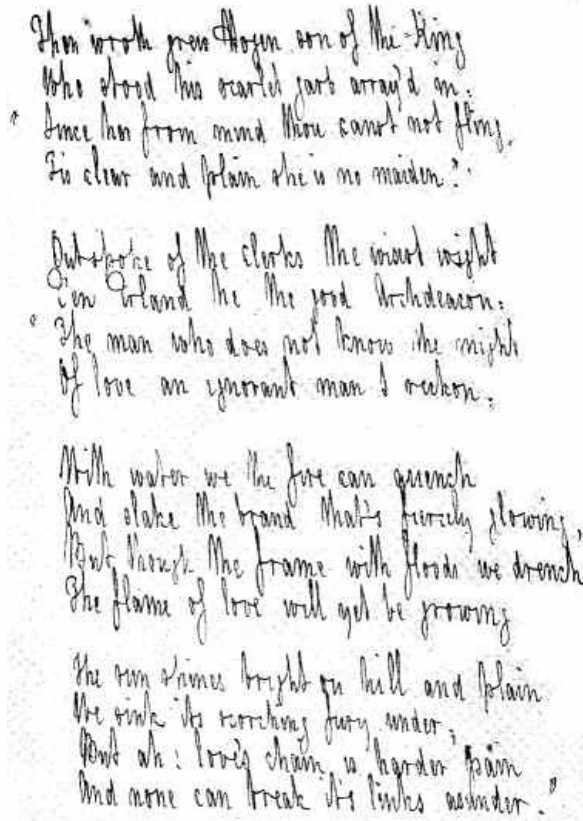 Then wroth grew Hogen son of the King
Who stood his scarlet garb array'd in:
" Since her from mind thou canst not fling,
Tis clear and plain she is no maiden."
Outspoke of the clerks the wisest wight
Een Erland he the good Archdeacon:
" The man who does not know the might
Of love an ignorant man I reckon.
With water we the fire can quench
And slake the brand that's fiercely glowing,
But though the frame with floods we drench
The flame of love will yet be growing
The sun shines bright on hill and plain
We sink its scorching fury under;
But ah! love's chain is harder pain
And none can break its links asunder."